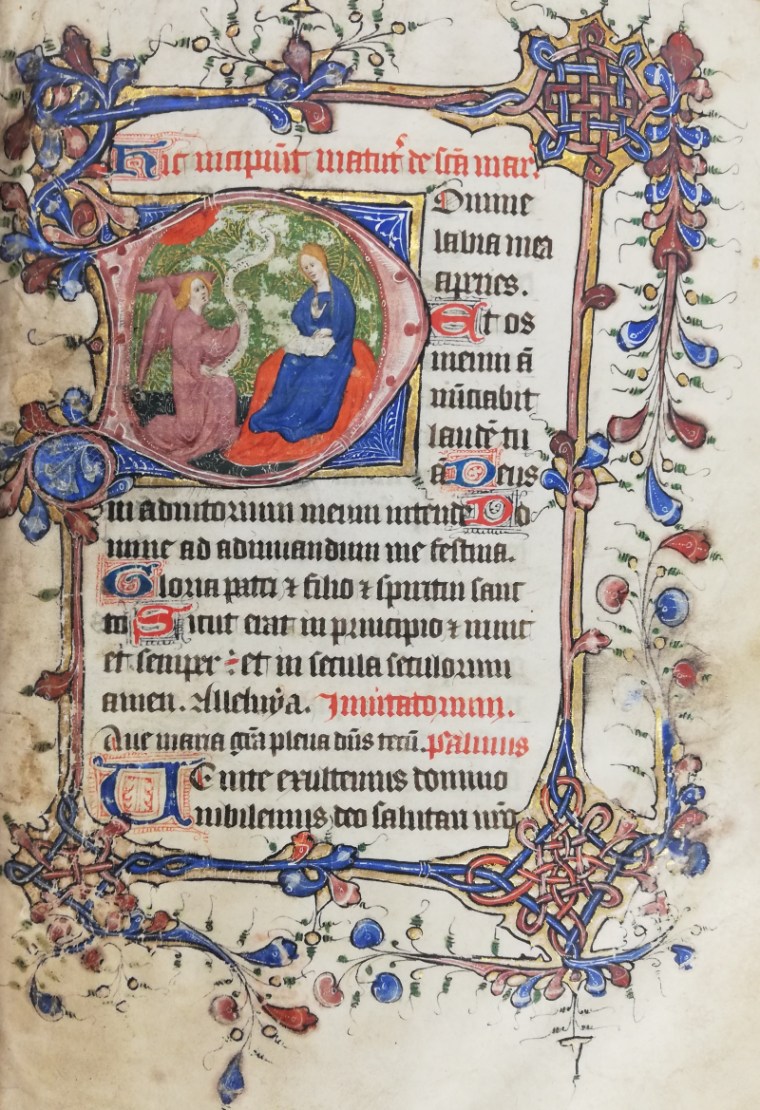 Hic incipiũt matutꝰ de scã marꝰ
Domine
labia mea
aperies.
Et os
meum ã
nũciabit
laudẽ tu
ã Deus
in adiutorium meum intende Do
mine ad adiuuandum me festina.
Gloria patri ⁊ filio ⁊ spiritui sanc
to Sicut erat in principio ⁊ nunc
et semper : et in secula seculorum
amen. Alleluya. Inuitatorium.
Aue maria grã plena dñs tecũ. psalmus
UEnite exultemus domino
iubilemus deo salutari nr̃o